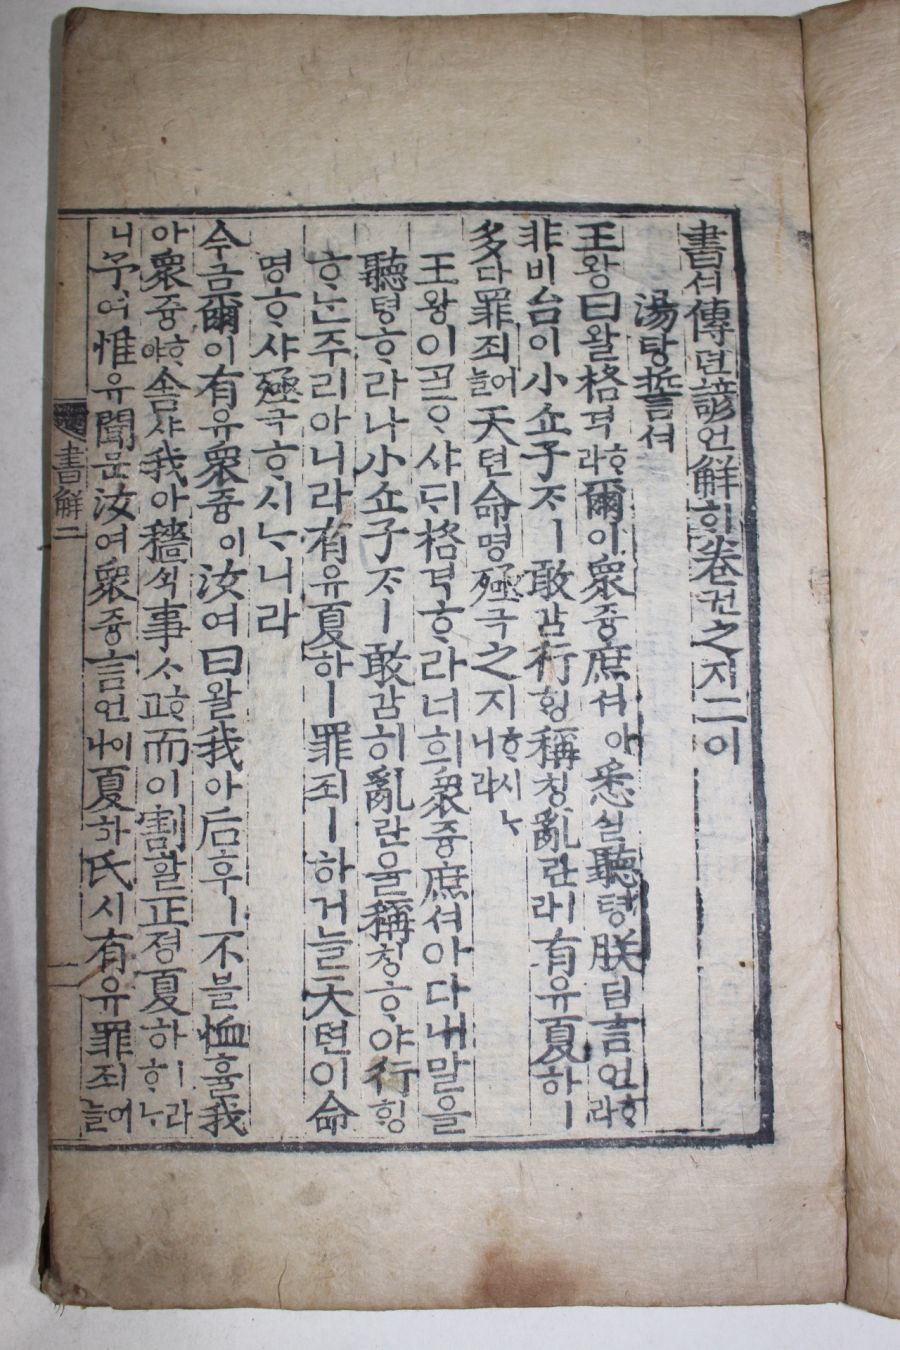 書셔傳뎐諺언解ᄒᆡ卷권之지二이
湯탕誓셔
王왕曰왈格격ᄒᆞ라爾이衆즁庶셔아悉실聽텽朕딤言언ᄒᆞ라
非비台이小쇼子ᄌᆞㅣ敢감行ᄒᆡᆼ稱칭亂란이라有유夏하ㅣ
多다罪죄ㅣ어늘天텬命명殛극之지ᄒᆞ시ᄂᆞ니라
王왕이ᄀᆞᆯᄋᆞ샤ᄃᆡ格격ᄒᆞ라너희衆즁庶셔아다내말을
聽텽ᄒᆞ라나小쇼子ᄌᆞㅣ敢감히亂란을稱칭ᄒᆞ야行ᄒᆡᆼ
ᄒᆞᄂᆞᆫ주리아니라有유夏하ㅣ罪죄ㅣ하거늘天텬이命
명ᄒᆞ샤殛극ᄒᆞ시ᄂᆞ니라
今금爾이有유衆즁이汝여曰왈我아后후ㅣ不블恤휼我
아衆즁ᄒᆞ야舍샤我아穡ᄉᆡᆨ事ᄉᆞᄒᆞ고而이割할正졍夏하ᄒᆞᄂᆞ라ᄒᆞᄂᆞ
니予여惟유聞문汝여衆즁言언이나夏하氏시有유罪죄어늘
書解二
一